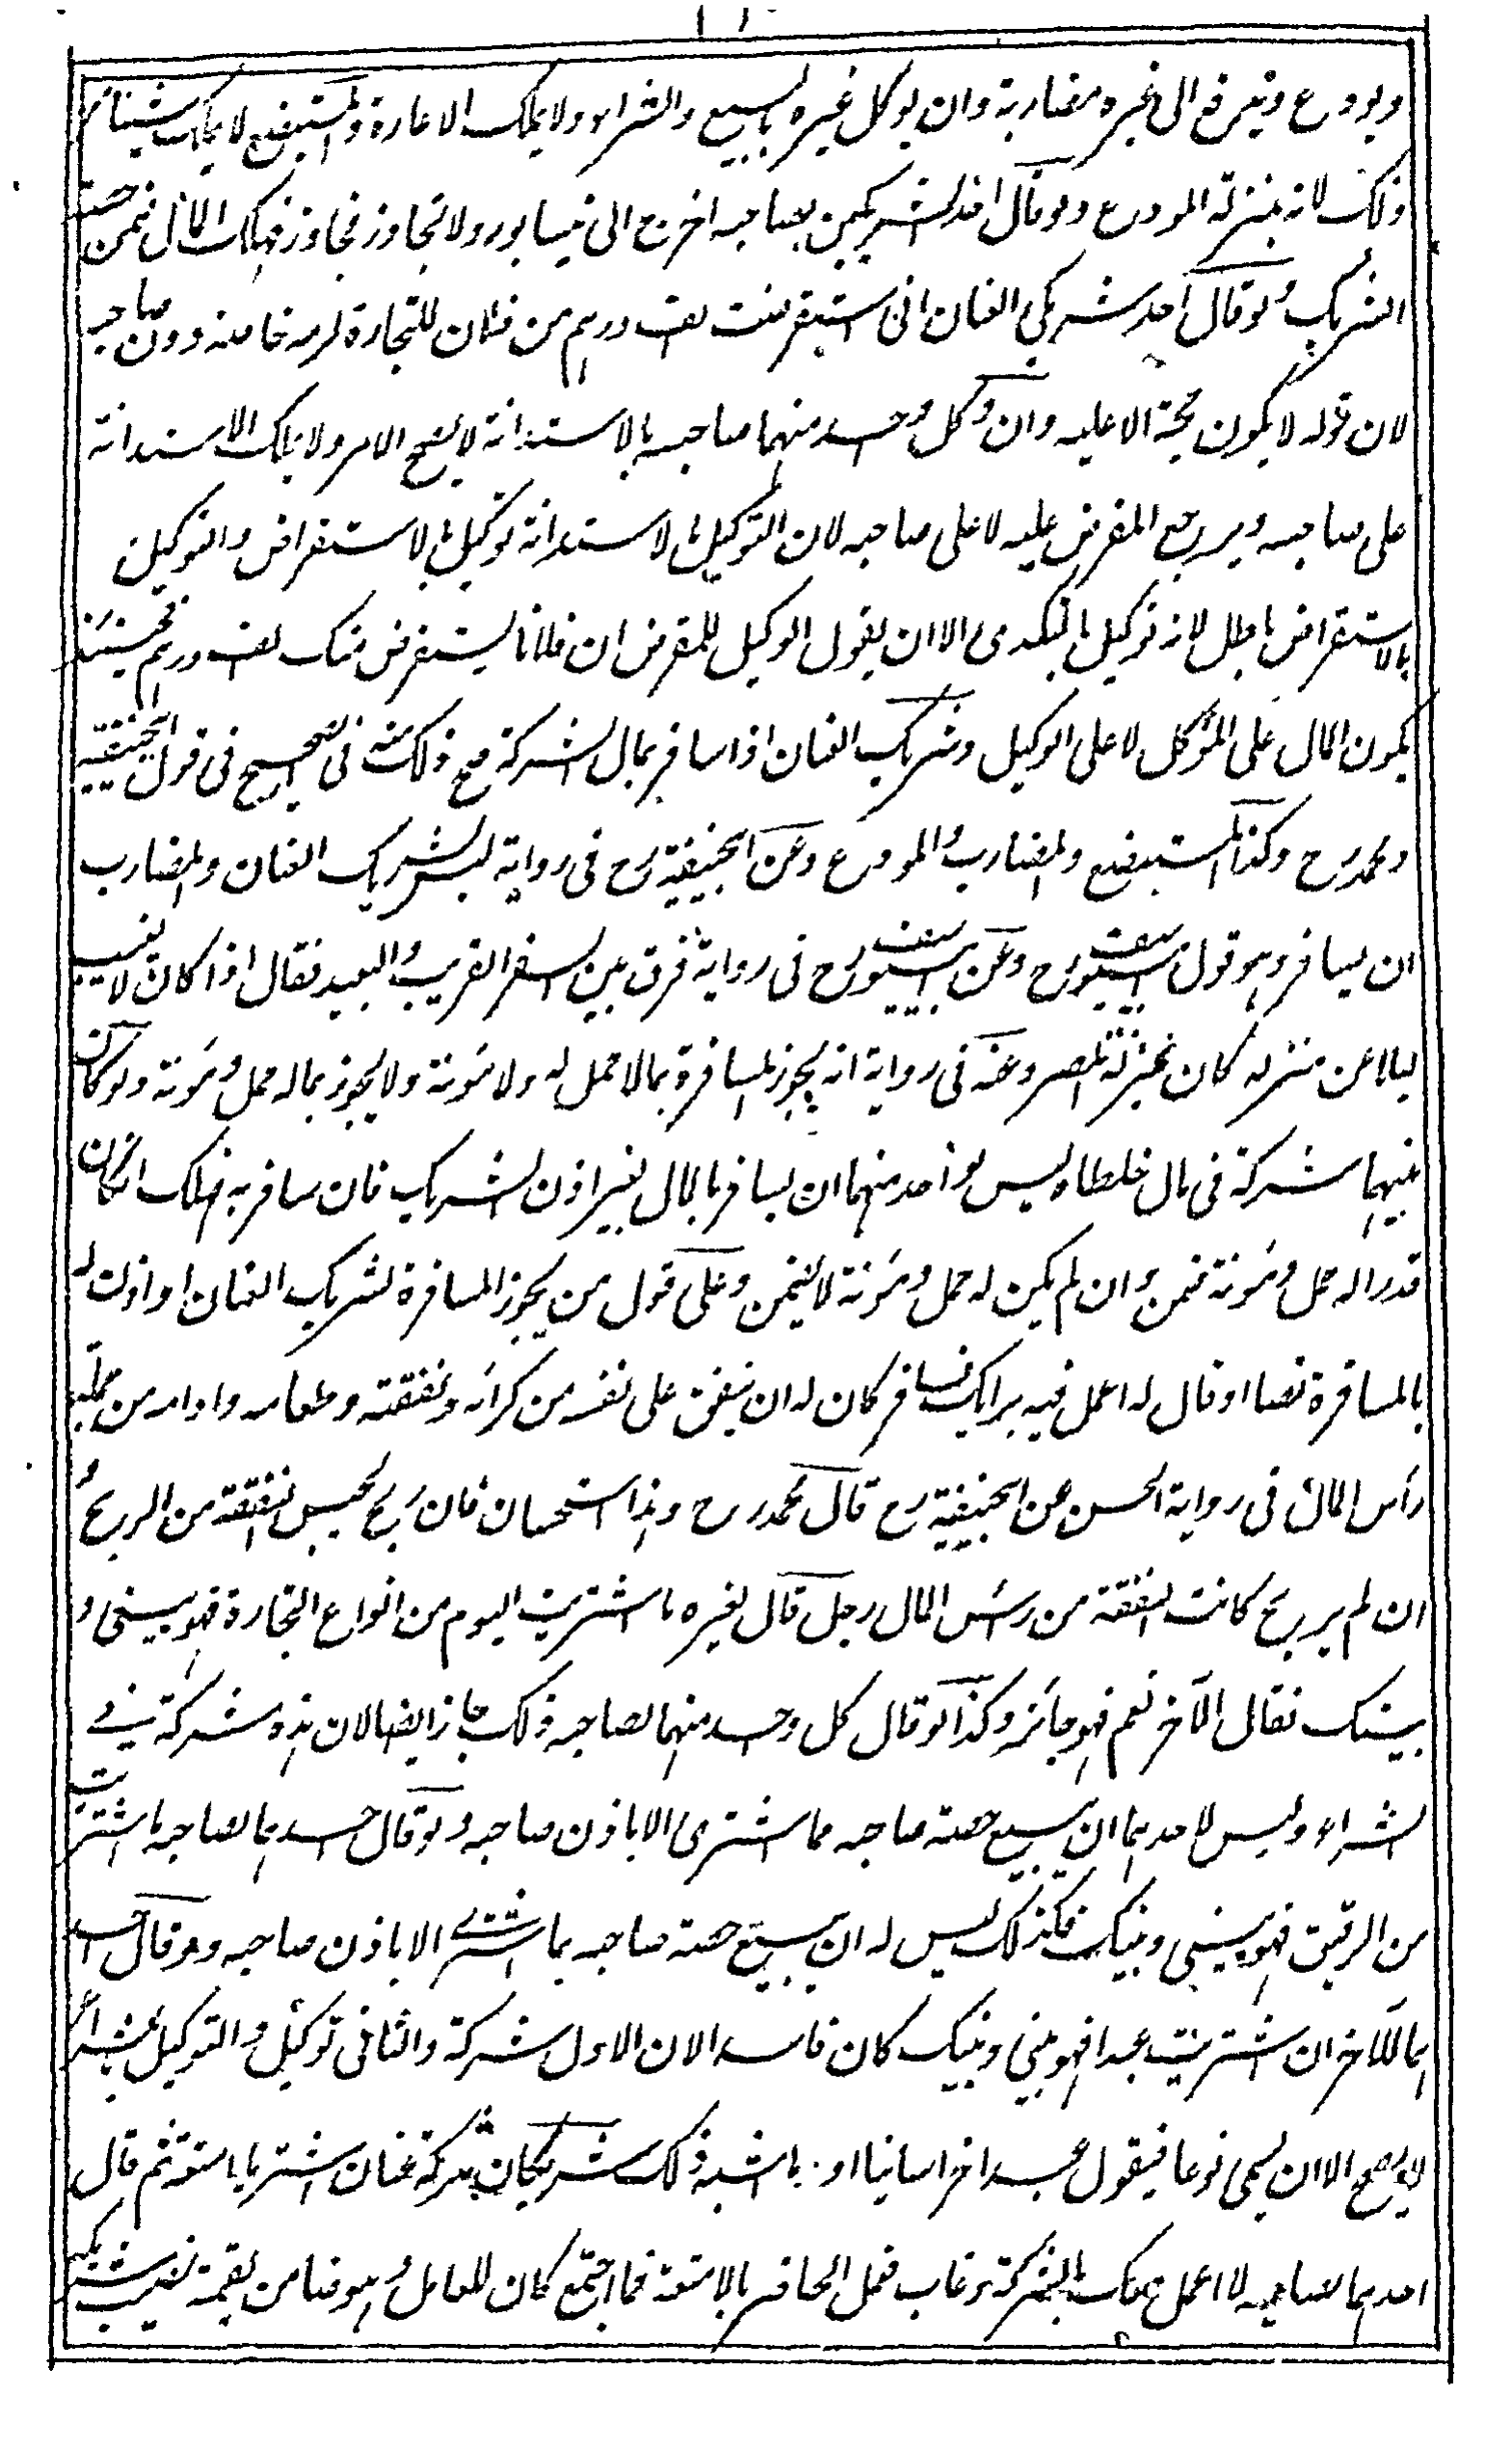 ويودع ويدفع الى غيره مضاربة وان يوكل غيره بالبيع والشراء ولا يملك الاعارة والمستبضع لا يملك شيئا من
ذلك لانه بمنزلة المودع ولو قال احد الشريكين لصاحبه اخرج الى نيسابور ولا تجاوز فجاوز فهلك المال ضمن حصة
الشريك ولو قال احد شريكي العنان انى استقرضت الف درهم من فلان للتجارة لزمه خاصة دون صاحبه
لان قوله لا يكون حجة الا عليه وان وكل واحد منهما صاحبه بالاستدانة لا يصح الامر ولا يملك الاستدانة
على صاحبه ويرجع المقرض عليه لا على صاحبه لان التوكيل بالاستدانة توكيل بالاستقراض والتوكيل
بالاستقراض باطل لانه توكيل بالتكدى الا ان يقول الوكيل للمقرض ان فلانا يستقرض منك الف درهم فحينئذ
يكون المال على الموكل لا على الوكيل وشريك العنان اذا سافر بمال الشركة صح ذلك منه فى الصحيح فى قول ابيحنيفة
ومحمد رح وكذا المستبضع والمضارب والمودع وعن ابيحنيفة رح فى رواية ليس لشريك العنان والمضارب
ان يسافر وهو قول ابييوسف رح وعن ابييوسف رح فى رواية فرق بين السفر القريب والبعيد فقال اذا كان لا يغيب
ليلا عن منزله كان بمنزلة المصر وعنه فى رواية انه يجوز المسافرة بما لا حمل له ولا مؤنة ولا يجوز بما له حمل ومؤنة ولو كان
بينهما شركة فى مال خلطاه ليس لواحد منهما ان يسافر بالمال بغير اذن الشريك فان سافر به فهلك ان كان
قدرا له حمل ومؤنة ضمن وان لم يكن له حمل ومؤنة لا يضمن وعلى قول من يجوز المسافرة لشريك العنان او اذن له
بالمسافرة نصا او قال له اعمل فيه برايك فسافر كان له ان ينفق على نفسه من كرائه ونفقته وطعامه وادامه من جملة
رأس المال فى رواية الحسن عن ابيحنيفة رح قال محمد رح وهذا استحسان فان ربح تحبس النفقة من الربح و
ان لم يربح كانت النفقة من رأس المال رجل قال لغيره ما اشتريت اليوم من انواع التجارة فهو بينى و
بينك فقال الآخر نعم فهو جائز وكذا لو قال كل واحد منهما لصاحبه ذلك جاز ايضا لان هذه شركة فى
الشراء وليس لاحدهما ان يبيع حصة صاحبه مما اشترى الا باذن صاحبه ولو قال احدهما لصاحبه ما اشتريت
من الرقيق فهو بينى وبينك فكذلك ليس له ان يبيع حصة صاحبه مما اشترى الا باذن صاحبه ولو قال احد
هما للآخر ان اشتريت عبدا فهو بينى وبينك كان فاسدا لان الاول شركة والثانى توكيل والتوكيل بشراء
لا يصح الا ان يسمى نوعا فيقول عبدا خراسانيا او ما اشبه ذلك شريكان شركة عنان اشتريا امتعة ثم قال
احدهما لصاحبه لا اعمل معك بالشركة وغاب فعمل الحاضر بالامتعة فما اجتمع كان للعامل وهو ضامن لقيمة نصيب شريكه